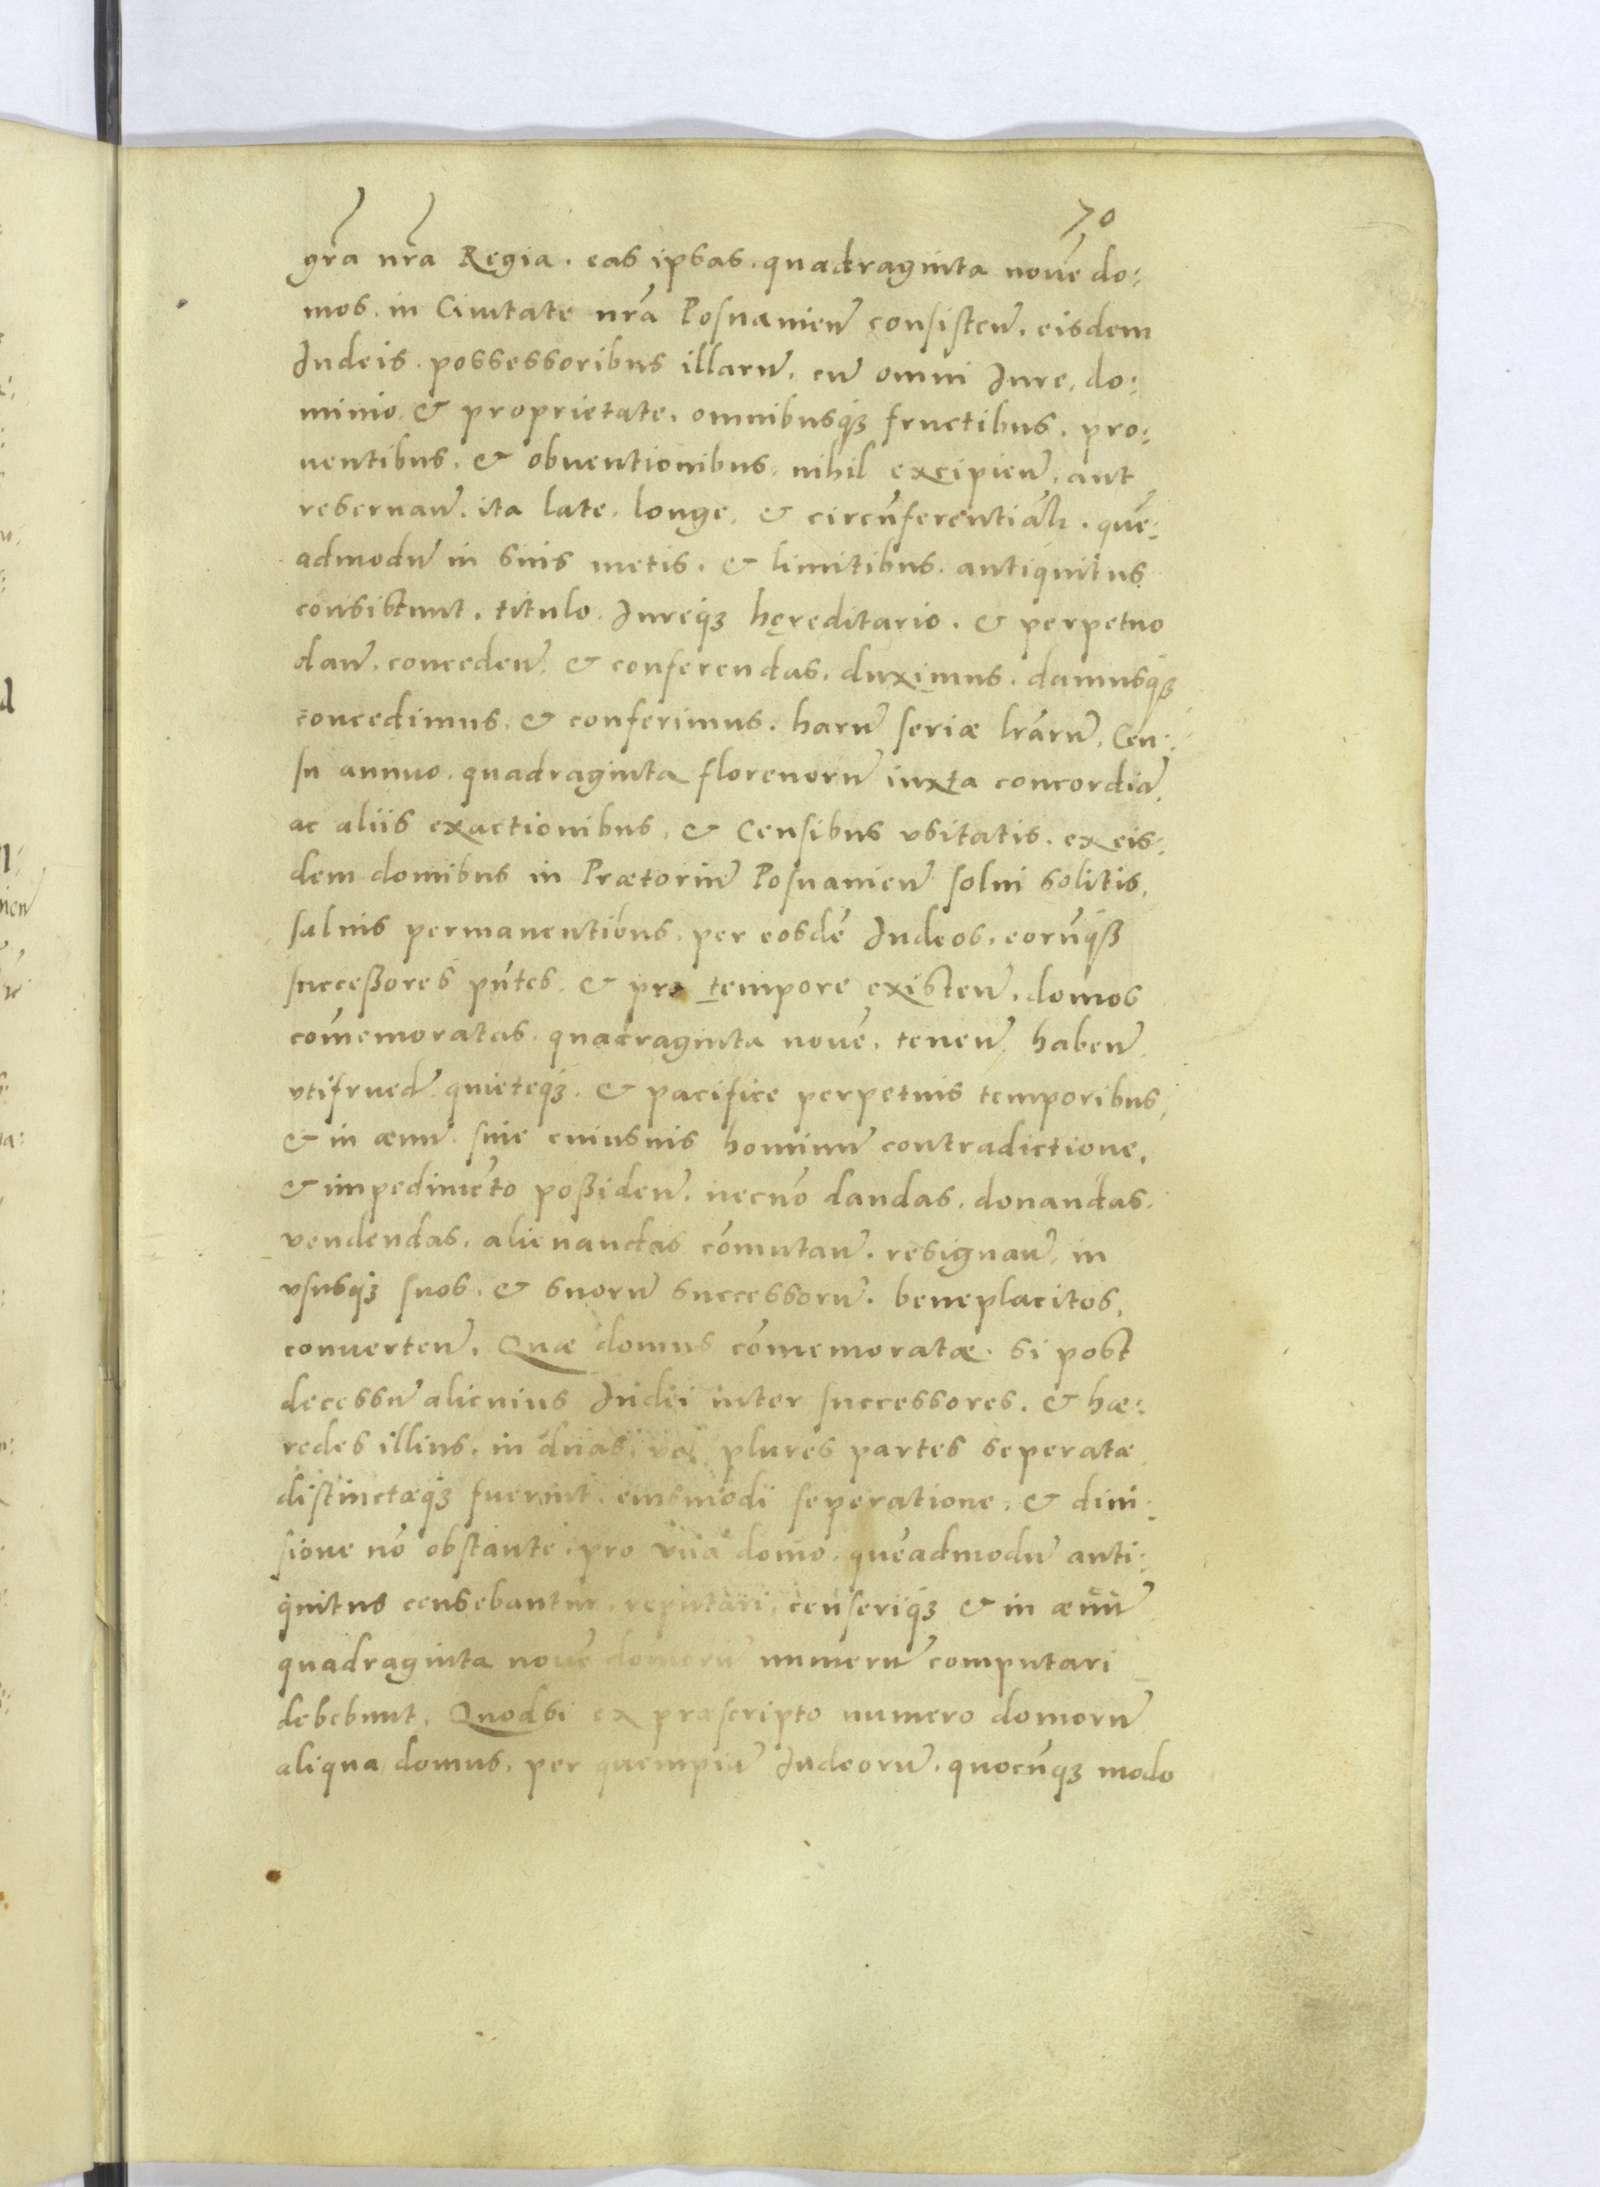 70
gr̃a nr̃a Regia. eas ipsas. quadraginta nouẽ do:
mos. in Ciuitate nr̃a Posnanien̄ consisten̄. eisdem
Iudeis. possessoribus illarū. cū omni Iure. do:
minio. & proprietate. omnibusq₃ fructibus. pro:
uentibus. & obuentionibus. nihil excipien̄. aut
reseruan̄. ita late. longe. & circũferentialr̃. quẽ:
admodū in suis metis. & limitibus. antiquitus
consistunt. titulo. Iureq₃ hęreditario. & perpetuo
dan̄. conceden̄. & conferendas. duximus. damusq₃
concedimus. & conferimus. harū seriæ lr̃arū. Cen:
su annuo. quadraginta florenorū iuxta concordiā.
ac aliis exactionibus. & Censibus vsitatis. ex eis:
dem domibus in Prætoriū Posnanien̄ solui solitis.
saluis permanentibus. per eosdẽ Iudeos. eorũq₃
succeßores pñtes. & pro tempore existen̄. domos
com̃emoratas. quadraginta nouẽ. tenen̄. haben̄.
vtifrued̄. quieteq₃. & pacifice perpetuis temporibus.
& in æuū. sine cuiusuis hominū contradictione.
& impedimẽto poßiden̄. necnõ dandas. donandas.
vendendas. alienandas com̃utan̄. resignan̄. in
vsusq₃ suos. & suorū successorū. beneplacitos.
conuerten̄. Quæ domus com̃emoratæ. si post
decessū alicuius Iudei inter successores. & hæ:
redes illius. in duas. vel plures partes seperatæ
distinctæq₃ fuerint. eiusmodi seperatione. & diui:
sione nõ obstante. pro vna domo. quẽadmodū anti:
quitus censebantur. reputari. censeriq₃ & in æuū
quadraginta nouẽ domorū numerū computari
debebunt. Quodsi ex præscripto numero domorū
aliqua domus. per quempiā Iudeorū. quocũq₃ modo